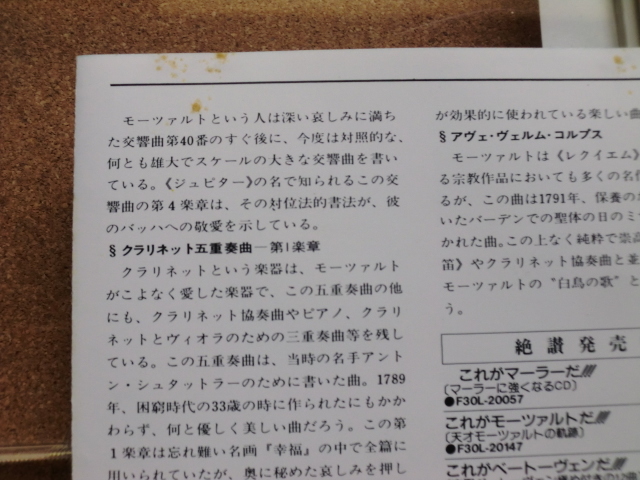 モーツァルトという人は深い哀しみに満ち
た交響曲第40番のすぐ後に、今度は対照的な、
何とも雄大でスケールの大きな交響曲を書い
ている。《ジュピター》の名で知られるこの交
響曲の第4楽章は、その対位法的書法が、彼
のバッハへの敬愛を示している。
§ クラリネット五重奏曲—第1楽章
クラリネットという楽器は、モーツァルト
がこよなく愛した楽器で、この五重奏曲の他
にも、クラリネット協奏曲やピアノ、クラリ
ネットとヴィオラのための三重奏曲等を残し
ている。この五重奏曲は、当時の名手アント
ン・シュタットラーのために書いた曲。1789
年、困窮時代の33歳の時に作られたにもかか
わらず、何と優しく美しい曲だろう。この第
1楽章は忘れ難い名画『幸福』の中で全篇に
用いられていたが、奥に秘めた哀しみを押し
が効果的に使われている楽しい曲
§ アヴェ・ヴェルム・コルプス
モーツァルトは《レクイエム》
る宗教作品においても多くの名作
るが、この曲は1791年、保養の
いたバーデンでの聖体の日のミ
かれた曲。この上なく純粋で崇高
笛》やクラリネット協奏曲と並
モーツァルトの〝白鳥の歌〟と
う。
絶讃発売
これがマーラーだ!!!!
(マーラーに強くなるCD)
●F30L-20057
これがモーツァルトだ!!!!
(天才モーツァルトの軌跡)
●F30L-20147
これがベートーヴェンだ!!!!